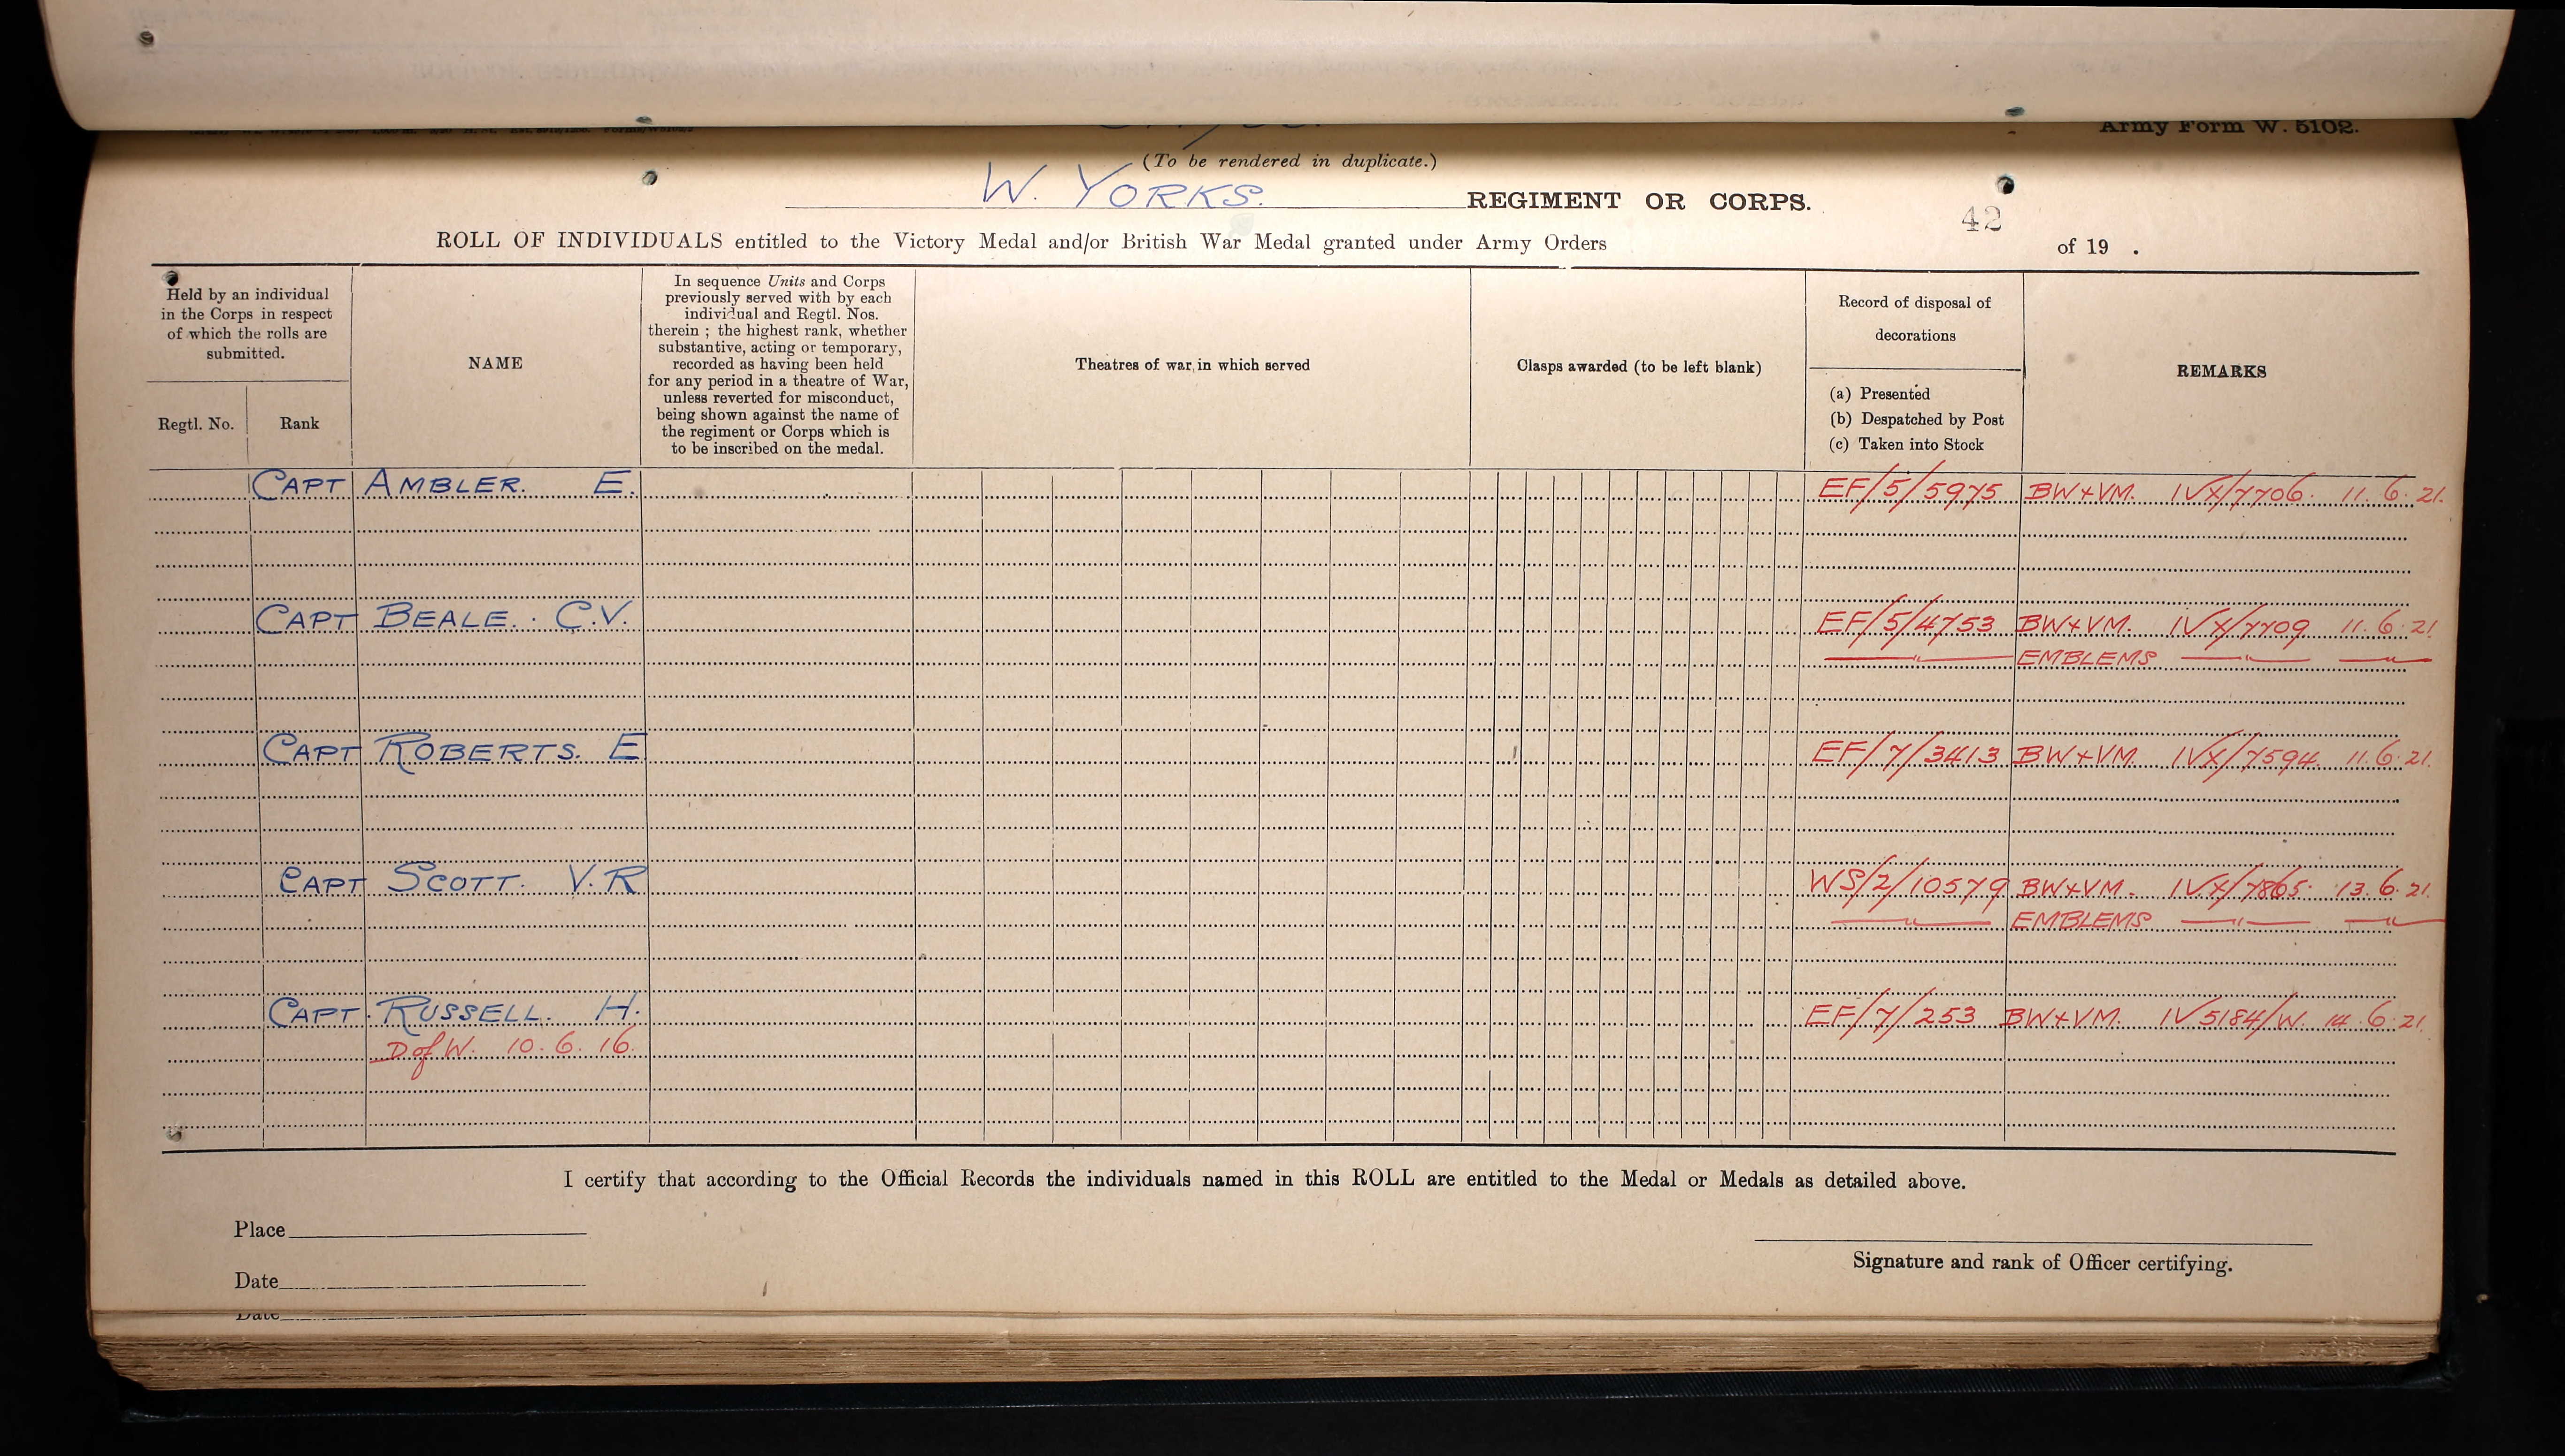 Army Form W. 5102.
(To be rendered in duplicate.)
W. YORKS. REGIMENT OR CORPS.
42
ROLL OF INDIVIDUALS entitled to the Victory Medal and/or British War Medal granted under Army Orders of 19 .
Held by an individual
in the Corps in respect
of which the rolls are
submitted.
Regtl. No.
Rank
NAME
In sequence Units and Corps
previously served with by each
individual and Regtl. Nos.
therein ; the highest rank, whether
substantive, acting or temporary,
recorded as having been held
for any period in a theatre of War,
unless reverted for misconduct,
being shown against the name of
the regiment or Corps which is
to be inscribed on the medal.
Theatres of war in which served
Clasps awarded (to be left blank)
Record of disposal of
decorations
(a) Presented
(b) Despatched by Post
(c) Taken into Stock
REMARKS
CAPT AMBLER. E. EF/5/5975 BW+VM. IVX/7706. 11.6.21.
CAPT BEALE. C.V. EF/5/4753 BW+VM. IVX/7709 11.6.21
—"— EMBLEMS —"— —"—
CAPT ROBERTS. E EF/7/3413 BW+VM. IVX/7594 11.6.21.
CAPT SCOTT. V.R WS/2/10579 BW+VM. IVX/7865. 13.6.21.
—"— EMBLEMS —"— —"—
CAPT. RUSSELL. H. EF/7/253 BW+VM. IV5184/W. 14.6.21.
D of W. 10.6.16.
I certify that according to the Official Records the individuals named in this ROLL are entitled to the Medal or Medals as detailed above.
Place
Date
Signature and rank of Officer certifying.
Date